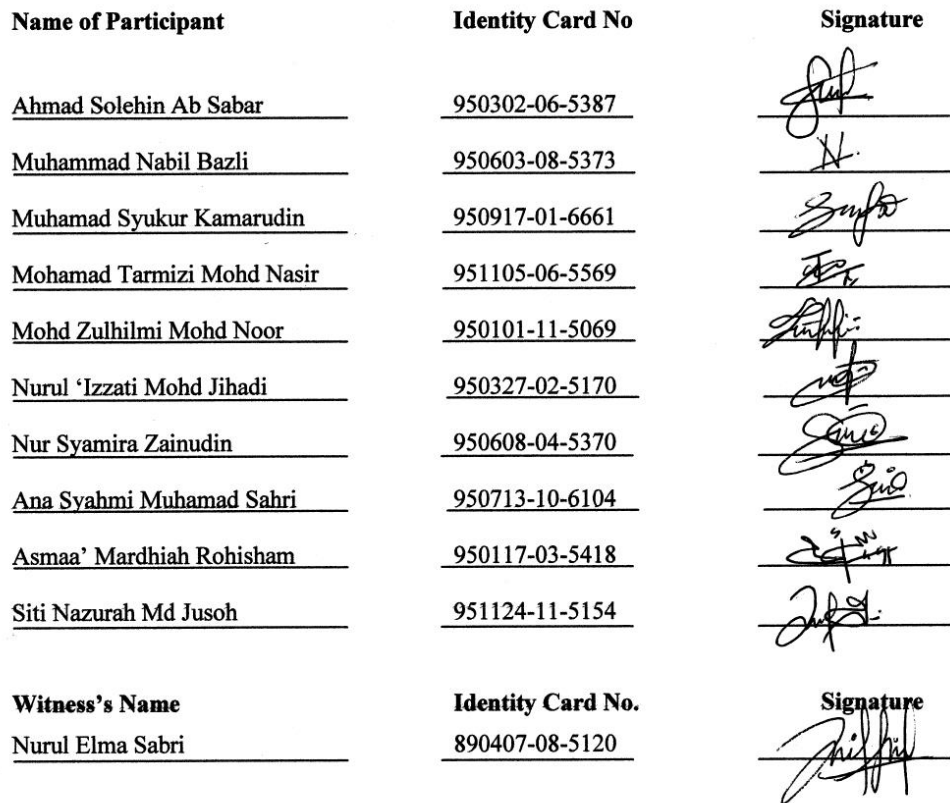 Name of Participant Identity Card No Signature
Ahmad Solehin Ab Sabar 950302-06-5387
Muhammad Nabil Bazli 950603-08-5373
Muhamad Syukur Kamarudin 950917-01-6661
Mohamad Tarmizi Mohd Nasir 951105-06-5569
Mohd Zulhilmi Mohd Noor 950101-11-5069
Nurul ‘Izzati Mohd Jihadi 950327-02-5170
Nur Syamira Zainudin 950608-04-5370
Ana Syahmi Muhamad Sahri 950713-10-6104
Asmaa’ Mardhiah Rohisham 950117-03-5418
Siti Nazurah Md Jusoh 951124-11-5154
Witness’s Name Identity Card No. Signature
Nurul Elma Sabri 890407-08-5120